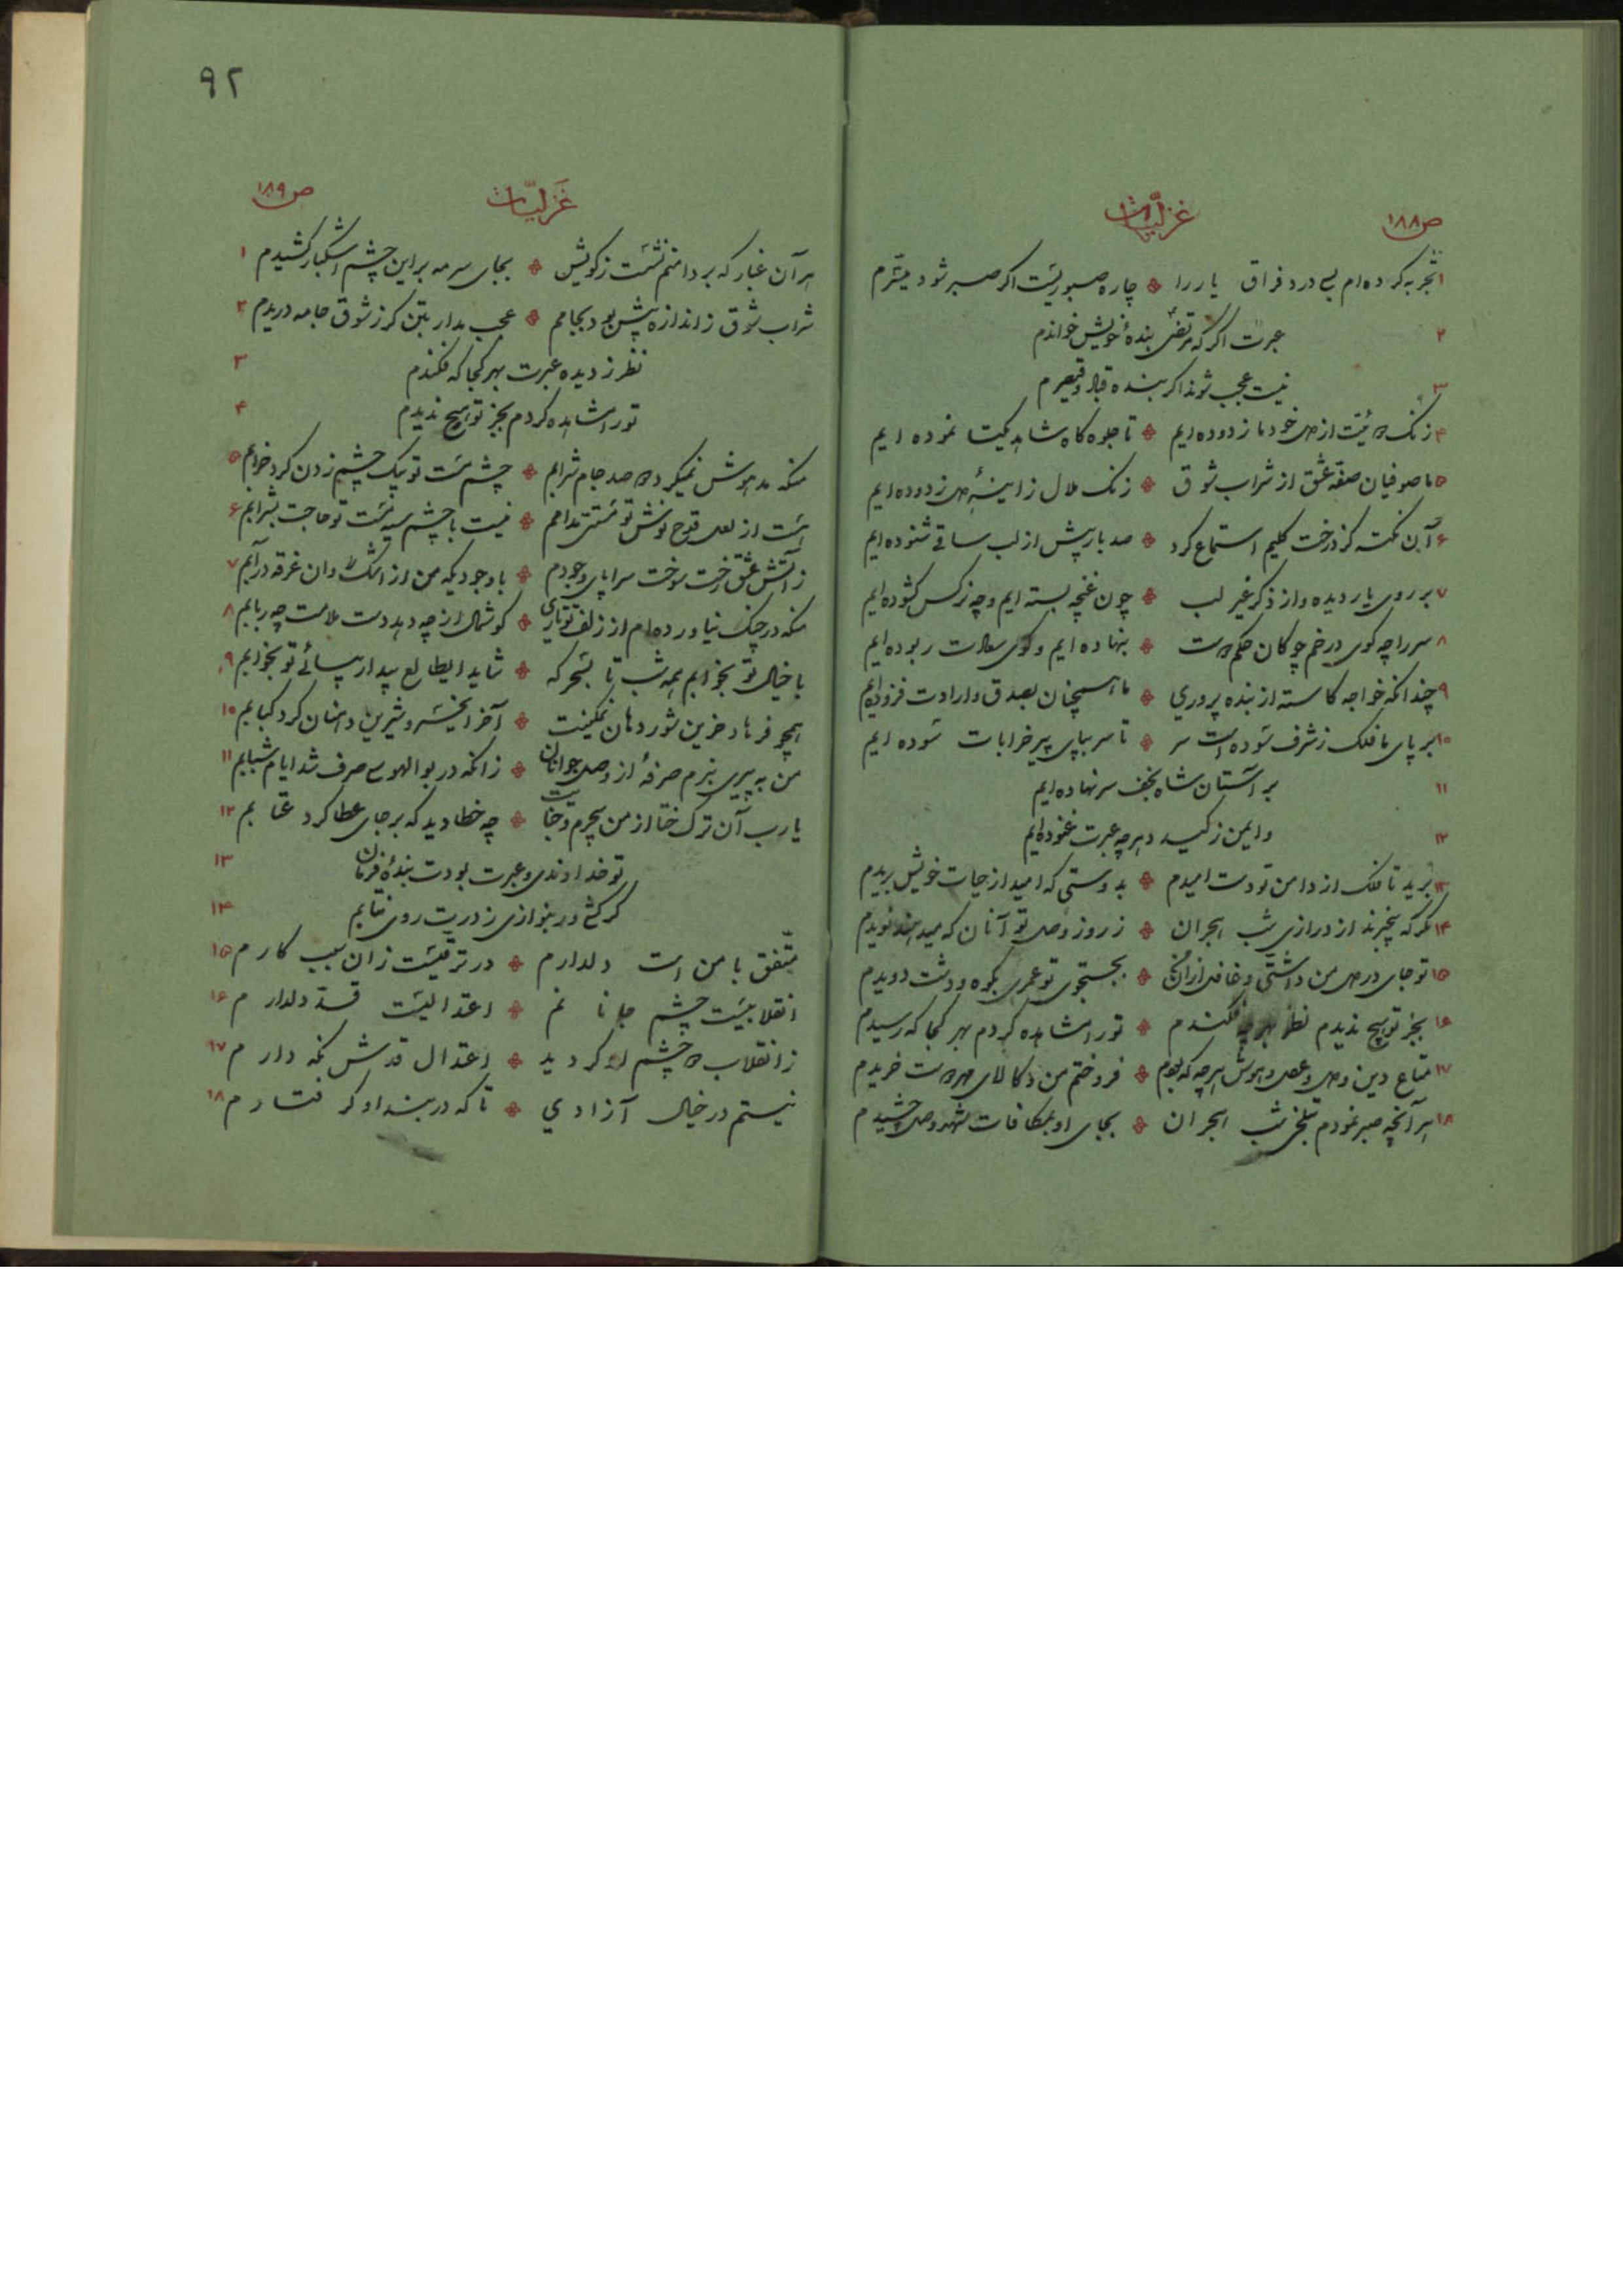 ص ۱۸۸
غزلیّات
۱ تجربه کرده ام بسی درد فراق یار را ❖ چاره صبوریست اگر صبر شود میسّرم
۲ عبرت اگر که مرتضی بندهٔ خویش خواندم
۳ نیست عجب شوند اگر بنده قباد و قیصرم
۴ زنک از دل خود ما زدوده ایم ❖ تا جلوه کاه شاهد یکتا نموده ایم
۵ ما صوفیان صفّه عشق از شراب شوق ❖ زنک ملال ز اینهٔ دل زدوده ایم
۶ آن نکته کز درخت کلیم استماع کرد ❖ صد بار پیش از لب ساقی شنوده ایم
۷ بر روی یار دیده و از ذکر غیر لب ❖ چون غنچه بسته ایم و چه نرکس کشوده ایم
۸ سر را چه کوی در خم چوکان حکم دوست ❖ بنهاده ایم و کوی سعادت ربوده ایم
۹ چندانکه خواجه کاسته از بنده پروری ❖ ما همچنان بصدق و ارادت فزوده ایم
۱۰ بر پای ما فلک ز شرف سوده است سر ❖ تا سر بپای پیر خرابات سوده ایم
۱۱ بر آستان شاه نجف سر نهاده ایم
۱۲ و ایمن ز کید دهر چه عبرت غنوده ایم
۱۳ برید تا فلک از دامن تو دست امیدم ❖ بدوستی که امید از حیات خویش بریدم
۱۴ مکر که بیخبرند از درازی شب هجران ❖ ز روز وصل تو آنان که میدهند نویدم
۱۵ تو جای در دل من داشتی و غافل از آن ❖ بجستجوی تو عمری بکوه و دشت دویدم
۱۶ بجز تو هیچ ندیدم نظر بهر چه فکندم ❖ تو را مشاهده کردم بهر کجا که رسیدم
۱۷ متاع دین و دل و عقل و هوش هر چه که بودم ❖ فروختم من و کالای مهر دوست خریدم
۱۸ هر آنچه صبر نمودم بتلخی شب هجران ❖ بجای او بمکافات شهد وصل چشیدم
۹۲
ص ۱۸۹
غزلیّات
هر آن غبار که بر دامنم نشست ز کویش ❖ بجای سرمه بر این چشم اشکبار کشیدم ۱
شراب شوق ز اندازه بیش بود بجامم ❖ عجب مدار بتن کر ز شوق جامه دریدم ۲
نظر ز دیده عبرت بهر کجا که فکندم ۳
تو را مشاهده کردم بجز تو هیچ ندیدم ۴
منکه مدهوش نمیکرد دو صد جام شرابم ❖ چشم مست تو بیک چشم زدن کرد خرابم ۵
هست از لعل قدح نوش تو مستی مدامم ❖ نیست با چشم سیه مست تو حاجت بشرابم ۶
ز آتش عشق رخت سوخت سراپای وجودم ❖ با وجودیکه من از اشک روان غرقه در آبم ۷
منکه در چنک نیاورده ام از زلف تو تاری ❖ کوشمال از چه دهد دست ملامت چه ربابم ۸
با خیال تو بخوابم همه شب تا بسحر که ❖ شاید ایطالع بیدار بیائی تو بخوابم ۹
همچو فرهاد حزین شور دهان نمکینت ❖ آخر ایخسرو شیرین دهنان کرد کبابم ۱۰
من به پیری نبرم صرفهٔ از وصل جوانان ❖ زانکه در بوالهوسی صرف شد ایام شبابم ۱۱
یا رب آن ترک ختا از من بیجرم و جنایت ❖ چه خطا دید که بر جای عطا کرد عتابم ۱۲
تو خداوندی و عبرت بودت بندهٔ فرمان ۱۳
کر کشی ور بنوازی ز درت روی نتابم ۱۴
متّفق با من است دلدارم ❖ در ترقّیست زان سبب کارم ۱۵
انقلابیست چشم جانانم ❖ اعتدالیست قدّ دلدارم ۱۶
ز انقلاب دو چشم او کردید ❖ اعتدال قدش نکه دارم ۱۷
نیستم در خیال آزادی ❖ تا که در بند او کرفتارم ۱۸